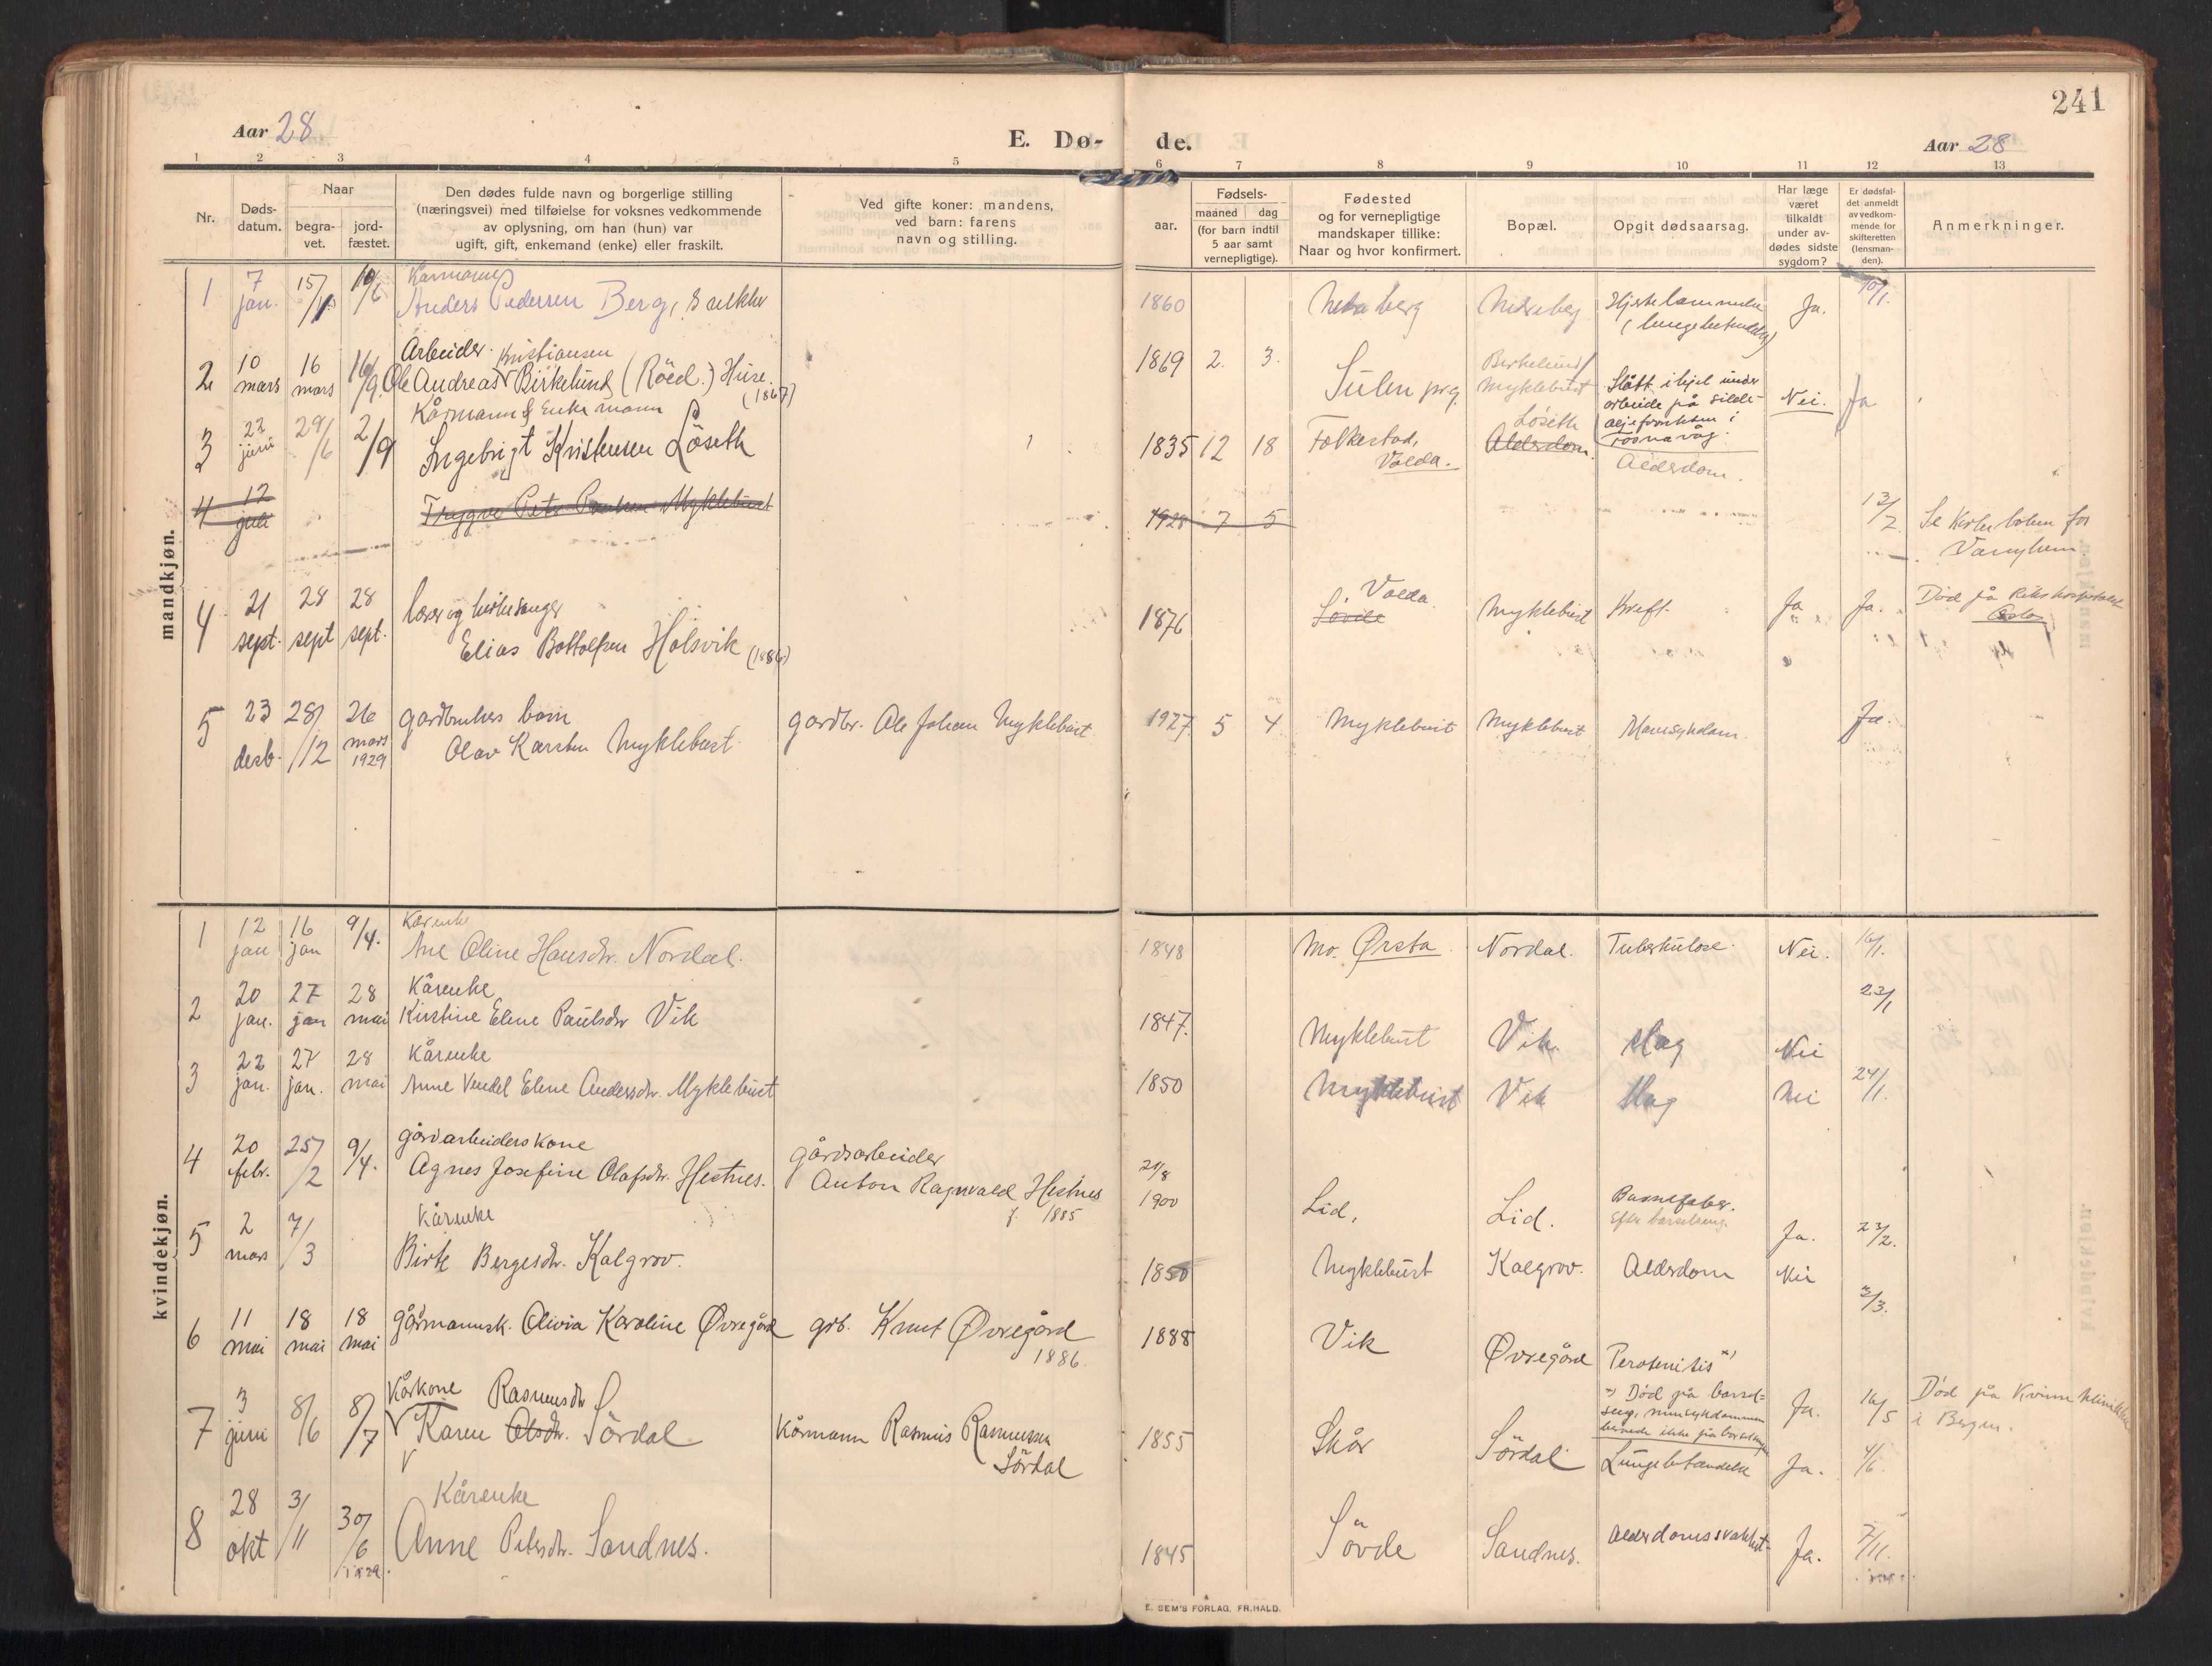 241
Aar 28
E. Dø-
de.
Aar 28
1 2 3 4 5 6 7 8 9 10 11 12 13
Nr.
Døds-
datum.
Naar
begra-
vet.
jord-
fæstet.
Den dødes fulde navn og borgerlige stilling
(næringsvei) med tilføielse for voksnes vedkommende
av oplysning, om han (hun) var
ugift, gift, enkemand (enke) eller fraskilt.
Ved gifte koner: mandens,
ved barn: farens
navn og stilling.
aar.
Fødsels-
maaned dag
(for barn indtil
5 aar samt
vernepligtige).
Fødested
og for vernepligtige
mandskaper tillike:
Naar og hvor konfirmert.
Bopæl.
Opgit dødsaarsag.
Har læge
været
tilkaldt
under av-
dødes sidste
sygdom?
Er dødsfal-
det anmeldt
av vedkom-
mende for
skifteretten
(lensman-
den).
Anmerkninger.
mandkjøn.
1 7 jan. 15/1
Anders Pedersen Berg,
1860 Berg Ja. 10/1.
2 10 mars 16 mars 16/9.
Arbeider. Kristiansen
Ole Andreas Birkelund (Röed.) Huse.
(1867)
1869 2. 3.
Sulen prg.
Birkelund/
Myklebust
Slått ihjel under
arbeide på silde-
oljefabrikken i
Fosnavåg.
Nei. Ja
3 22 juni 29/6 2/9
Kårmann & Enkemann
Ingebrigt Kristensen Löseth
1835 12 18
Folkestad,
Volda.
Löseth
Alderdom.
Alderdom.
4 12 juli
Tryggve Peter Myklebust
1928 7 5
13/7. Se Kirkeboken for
Vanylven
4 21 sept. 28 sept 28 sept.
lærer og kirkesanger
Elias Bottolfsen Holsvik (1886)
1876
Volda
Sövde
Myklebust Kreft. Ja Ja.
Død på Rikshospitalet
Oslo
5 23 desb. 28/12 26 mars 1929
gardbrukers barn
Olav Karsten Myklebust
gardbr. Ole Johan Myklebust
1927 5 4 Myklebust Myklebust Ja.
kvindekjøn.
1 12 jan 16 jan 9/4.
Kårenke
Ane Oline Hansdtr. Nordal.
1848 Mo. Ørsta Nordal. Tuberkulose. Nei. 16/1.
2 20 jan. 27 jan 28 mai
Kårenke
Kirstine Elene Paulsdtr Vik
1847. Myklebust Vik. Slag Nei 23/1
3 22 jan. 27 jan. 28 mai
Kårenke
Anne Vendel Elene Andersdtr. Myklebust
1850 Myklebust Vik Slag Nei 24/1.
4 20 febr. 25/2 9/4.
gårdarbeiders kone
Agnes Josefine Olafsdtr. Hestnes.
gårdsarbeider
Anton Ragnvald Hestnes
f. 1885
21/8
1900 Lid. Lid.
Barnefeber.
Efter barselseng.
Ja. 23/2.
5 2 mars 7/3
Kårenke
Birte Bergesdtr. Kalgrov.
1850 Myklebust Kalgrov. Alderdom Nei 3/3.
6 11 mai 18 mai 18 mai
gårmannsk. Olivia Karoline Øvregård
grb. Knut Øvregård
1886.
1888 Vik Øvregård Perotenitis x)
x) Död på barsel=
seng, men sykdommen
beroede ikke på barselseng
Ja. 16/5
Död på Kvinneklinikken
i Bergen.
7 3 juni 8/6 8/7
Kårkone Rasmusdtr
Karen Olsdtr. Sördal
Kårmann Rasmus Rasmussen
Sördal
1855 Skår Sördal Lungebetændelse Ja. 4/6.
8 28 okt 3/11 30/6 1929.
Kårenke
Anne Petersdtr. Sandnes.
1845 Sövde Sandnes. Alderdomssvakhet. Ja. 7/11.
kvindekjøn.
E. SEM'S FORLAG, FR.HALD.